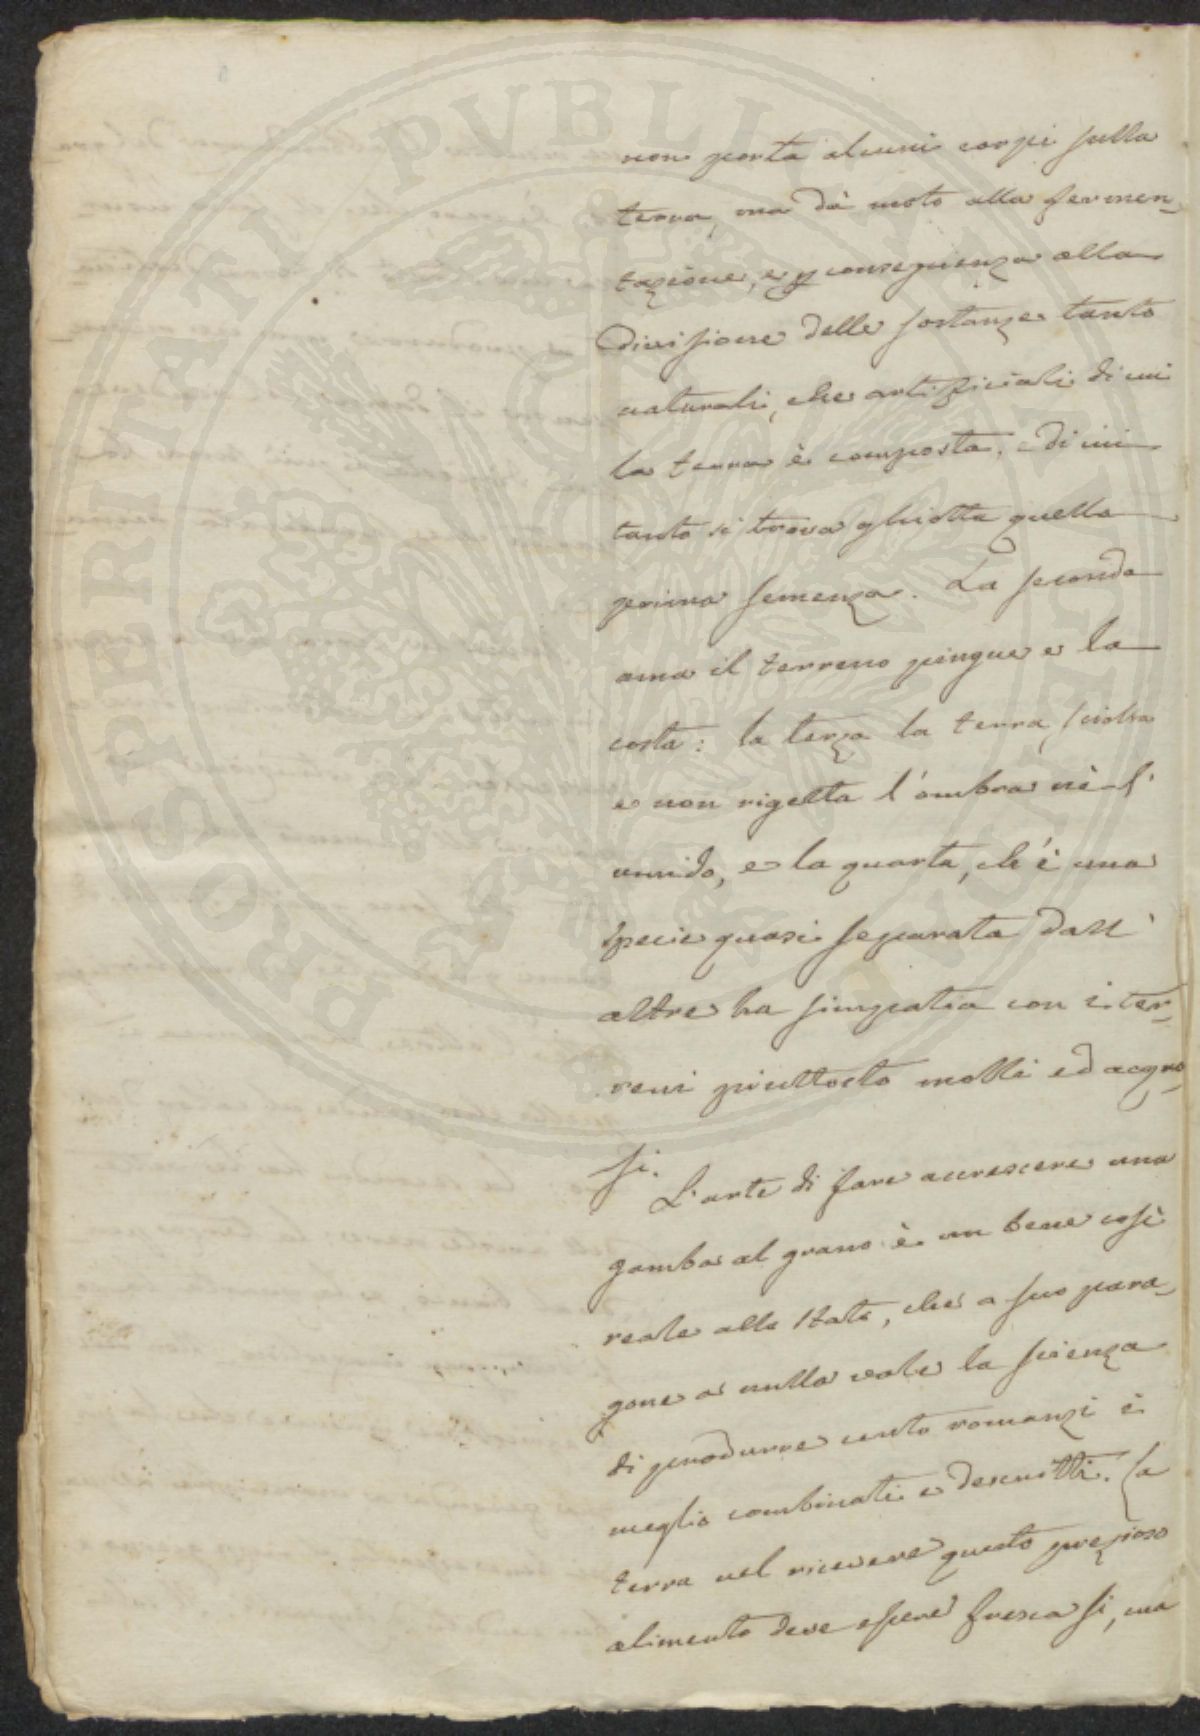 non porta alcuni corpi sulla
terra, ma dà moto alla fermen-
tazione, e p conseguenza alla
divisione delle sostanze tanto
naturali, che artificiali di cui
la terra è composta, e di cui
tanto si trova ghiotta quella
prima semenza. La seconda
ama il terreno pingue e la
costa: la terza la terra sciolta
e non rigetta l'ombra nè l'
umido, e la quarta, ch'è una
specie quasi separata dall'
altre ha simpatia con i ter-
reni piuttosto molli ed acquo-
si.
L'arte di fare accrescere una
gamba al grano è un bene così
reale allo Stato, che a suo para-
gone a nulla vale la scienza
di produrre cento romanzi i
meglio combinati e descritti. La
terra nel ricevere questo prezioso
alimento deve essere fresca si, ma
PROSPERITATI PVBLICAE